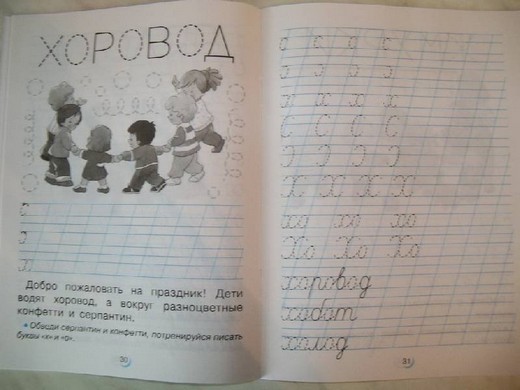 ХОРОВОД
с
Добро пожаловать на праздник! Дети
водят хоровод, а вокруг разноцветные
конфетти и серпантин.
Обведи серпантин и конфетти, потренируйся писать
буквы «х» и «о».
30
с с с с
х х х х
С С С С
Х Х Х Х
хо хо хо
Хо Хо Хо
хоровод
хобот
холод
31